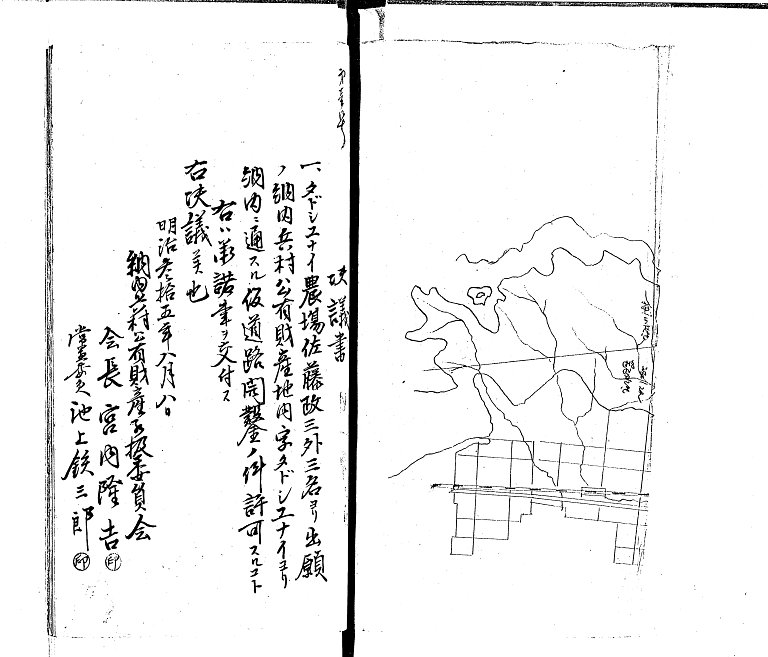 決議書
一、タドシユナイ農場佐藤政三外三名ヨリ出願
ノ納内兵村公有財産地内字タドシユナイヨリ
納内ニ通スル仮道路開鑿ノ件許可スルコト
右ハ承諾書ヲ交付ス
右決議美也
明治参拾五年八月八日
納内兵村公有財産取扱委員会
会長宮内隆吉 印
当番委員池上鉄三郎 印